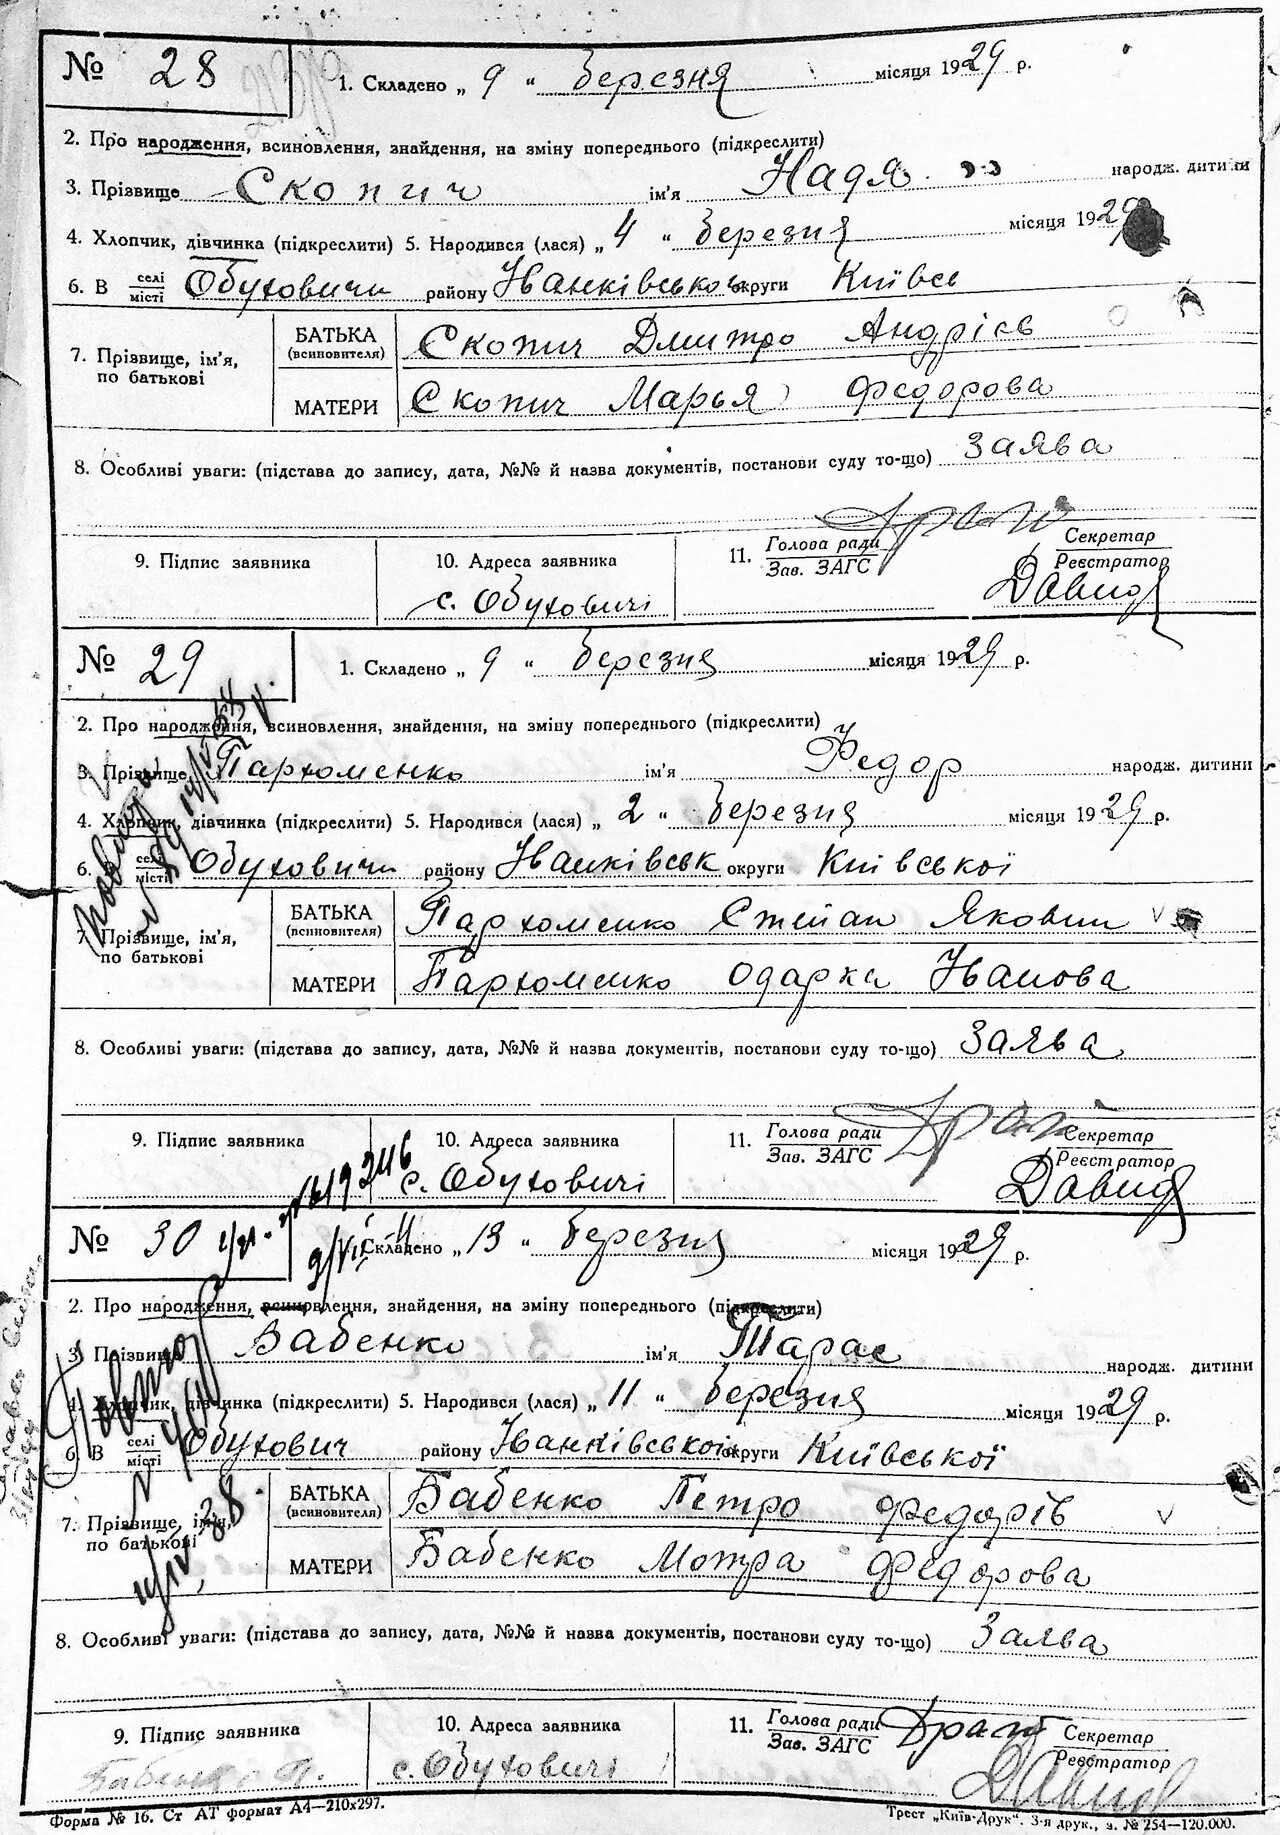 № 28
1. Складено „ 9 “ березня місяця 1929 р.
2. Про народження, всиновлення, знайдення, на зміну попереднього (підкреслити)
3. Прізвище Скопич ім'я Надя народж. дитини
4. Хлопчик, дівчинка (підкреслити) 5. Народився (лася) „ 4 “ березня місяця 1929
6. В селі місті Обуховичи району Іванківської округи Київсь
7. Прізвище, ім'я, по батькові
БАТЬКА (всиновителя) Скопич Дмитро Андрієв
МАТЕРИ Скопич Марья Федорова
8. Особливі уваги: (підстава до запису, дата, №№ й назва документів, постанови суду то-що) Заява
9. Підпис заявника 10. Адреса заявника 11. Голова ради Зав. ЗАГС Секретар Реєстратор
с. Обуховичі Давид
№ 29
1. Складено „ 9 “ березня місяця 1929 р.
2. Про народження, всиновлення, знайдення, на зміну попереднього (підкреслити)
3. Прізвище Пархоменко ім'я Федор народж. дитини
4. Хлопчик, дівчинка (підкреслити) 5. Народився (лася) „ 2 “ березня місяця 1929 р.
6. селі місті Обуховичи району Іванківськ округи Київської
7. Прізвище, ім'я, по батькові
БАТЬКА (всиновителя) Пархоменко Степан Якович
МАТЕРИ Пархоменко Одарка Іванова
8. Особливі уваги: (підстава до запису, дата, №№ й назва документів, постанови суду то-що) Заява
9. Підпис заявника 10. Адреса заявника 11. Голова ради Зав. ЗАГС Секретар Реєстратор
с. Обуховичі Давид
№ 30
Складено „ 13 “ березня місяця 1929 р.
2. Про народження, всиновлення, знайдення, на зміну попереднього (підкреслити)
3. Прізвище Бабенко ім'я Тарас народж. дитини
4. Хлопчик, дівчинка (підкреслити) 5. Народився (лася) „ 11 “ березня місяця 1929 р.
6. В селі місті Обухович району Іванківської округи Київської
7. Прізвище, ім'я, по батькові
БАТЬКА (всиновителя) Бабенко Петро Федорів
МАТЕРИ Бабенко Мотра Федорова
8. Особливі уваги: (підстава до запису, дата, №№ й назва документів, постанови суду то-що) Заява
9. Підпис заявника 10. Адреса заявника 11. Голова ради Зав. ЗАГС Секретар Реєстратор
Бабенко П. с. Обуховичі Давид
Форма № 16. Ст АТ формат А4—210х297. Трест „Київ-Друк“. 3-я друк., з. № 254—120.000.